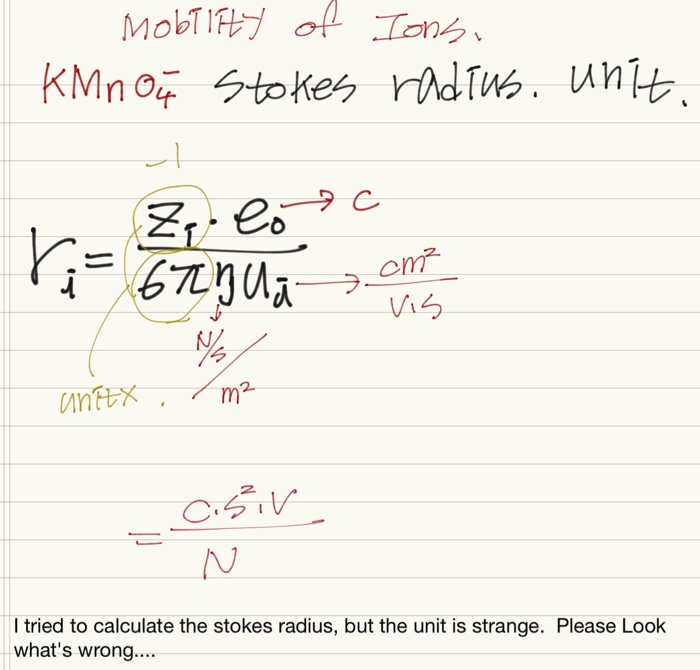 Mobility of Ions.
KMnO4⁻ Stokes radius. unit.
-1
r_i = (z_i · e_0) / (6πηu_i)
→ C
→ cm² / V·S
↓
N/s / m²
unitx .
= C·S²·V / N
I tried to calculate the stokes radius, but the unit is strange. Please Look
what's wrong....